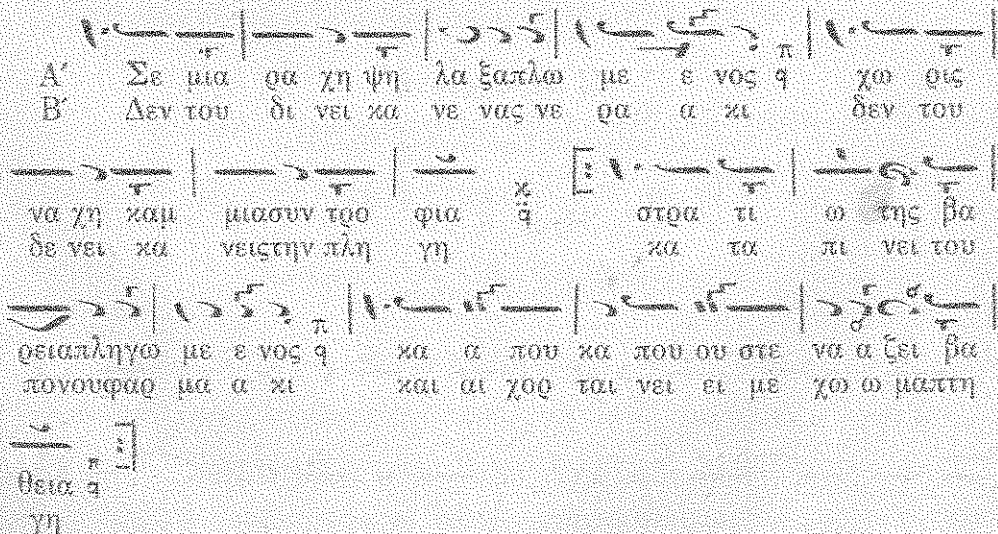 Α΄ Σε μια ρα χη ψη λα ξαπλω με ε νος π q χω ρις
Β΄ Δεν του δι νει κα νε νας νε ρα α κι δεν του
να χη καμ μιασυν τρο φια κ q στρα τι ω της βα
δε νει κα νειςτην πλη γη κα τα πι νει του
ρειαπληγω με ε νος π q κα α που κα που ου στε να α ζει βα
πονουφαρ μα α κι και αι χορ ται νει ει με χω ω μαπτη
θεια π q
γη